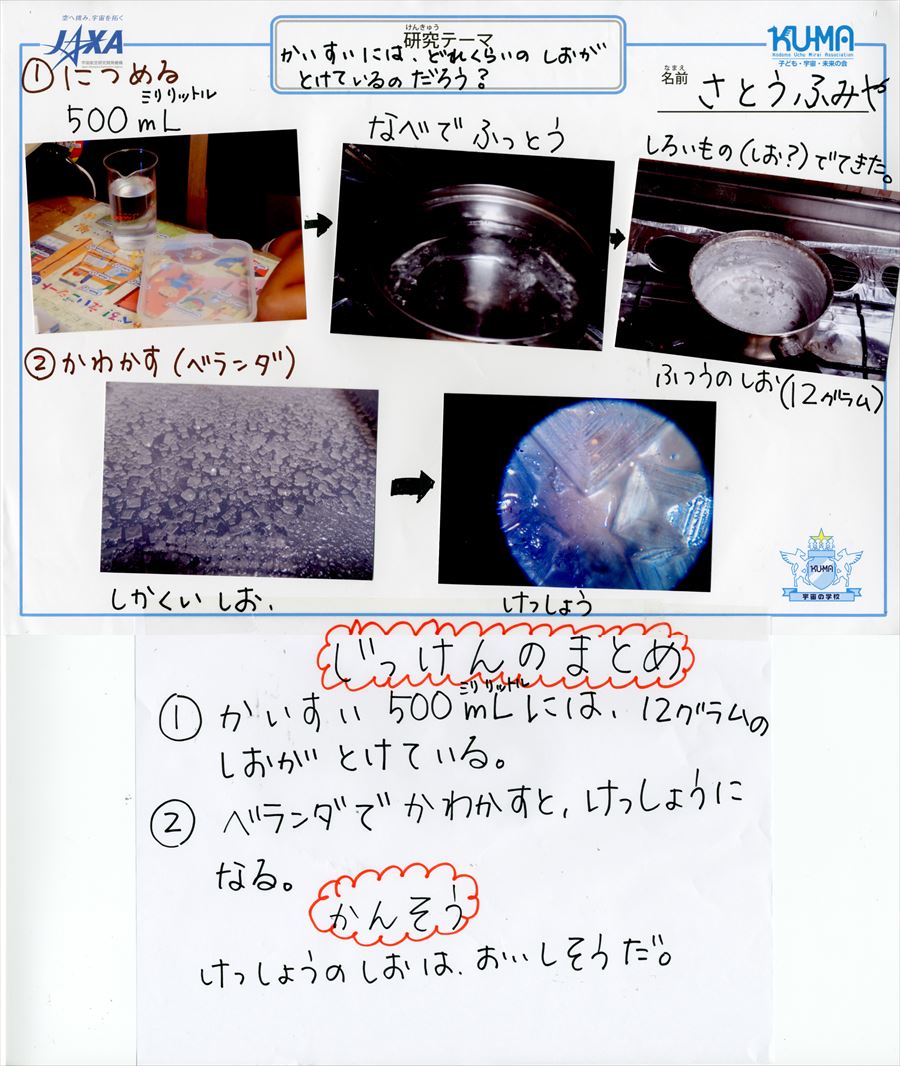 空へ挑み、宇宙を拓く
JAXA
宇宙航空研究開発機構
けんきゅう
研究テーマ
かいすいには、どれくらいの しおが
とけているの だろう?
KU-MA
Kodomo Uchu Mirai Association
子ども・宇宙・未来の会
なまえ
名前
さとう ふみや
① につめる
ミリリットル
500mL
なべで ふっとう
しろいもの(しお?)でてきた。
ふつうの しお(12グラム)
② かわかす(ベランダ)
しかくい しお、
けっしょう
KU-MA
宇宙の学校
じっけんの まとめ
ミリリットル
① かいすい 500mLには、12グラムの
しおが とけている。
② ベランダで かわかすと、けっしょうに
なる。
かんそう
けっしょうの しおは、おいしそうだ。